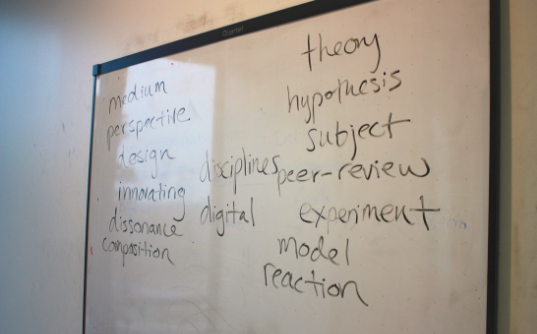 Quartet
medium
perspective
design
innovating
dissonance
composition
disciplines
digital
theory
hypothesis
subject
peer-review
experiment
model
reaction